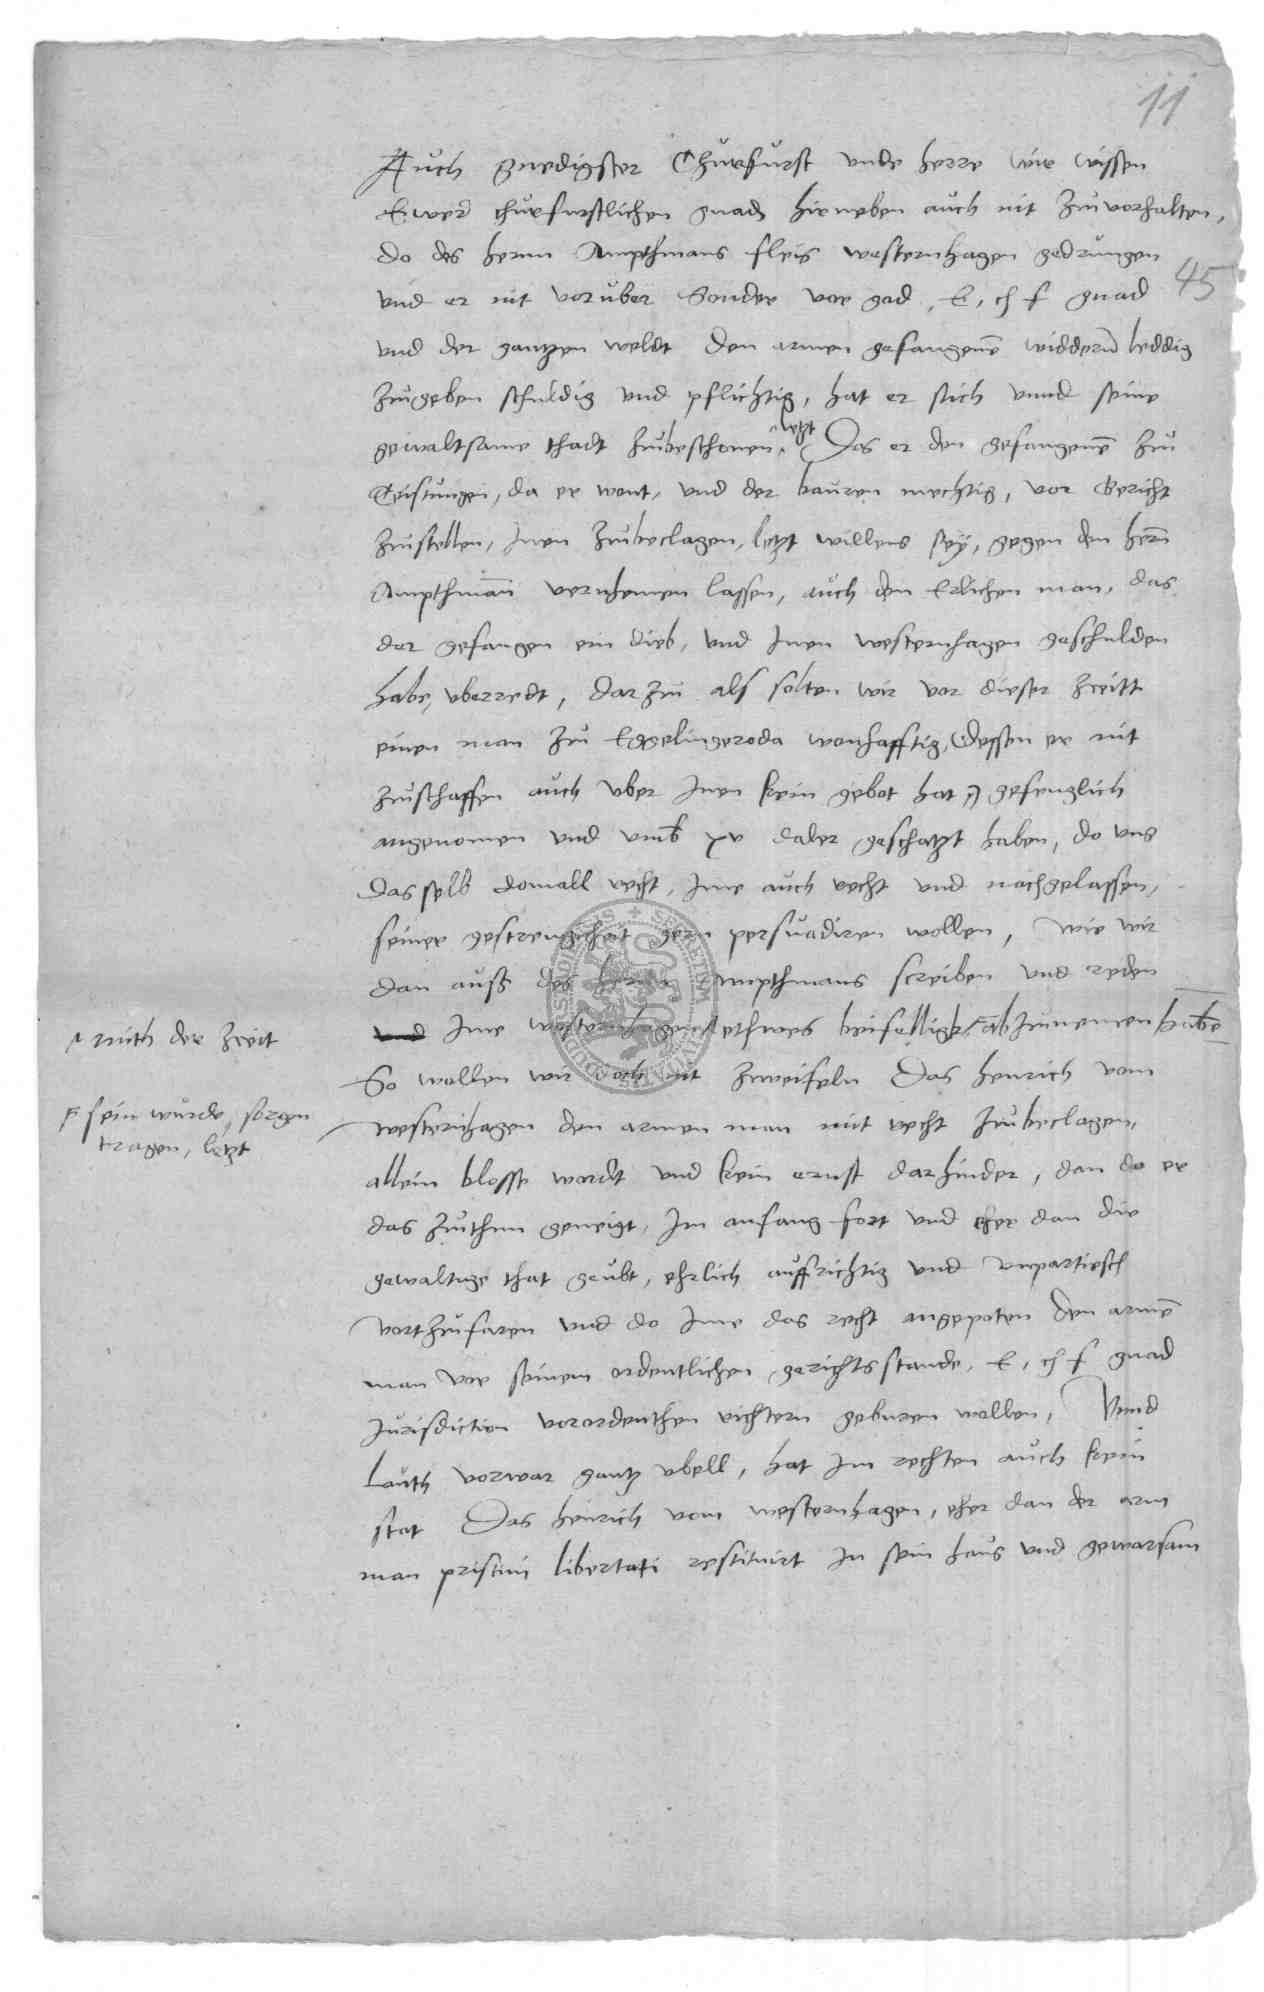 11
Auch Gnedigster Churfurst unde herre wir wissen
Ewer churfurstlichen gnad hirneben auch nit zuvorhalten,
do des hernn Ampthmans fleis westernhagen gedrungen
45
und er nit voruber Sonder vor god, E, ch f gnad
und der gantzen weldt den armen gefangenē widderū leddig
zugeben schuldig und pflichtig, hat er sich unnd seine
gewaltsame thadt zubeschonen, letzt Das er den gefangenē zu
Teistungen, da er wont, und der bauren mechtig, vor Gericht
zustellen, Inen zubeclagen, letzt willens sey, gegen den hern
Ampthman vernhemen lassen, auch den Erlichen man, das
der gefangen ein dieb, und Inen westernhagen geschulden
habe, uberredt, dar zu als solten wir vor dieser zeitt
einen man zu Eggelingeroda wonhafftig, (dessen er nit
zuschaffen auch uber Inen kein gebot hat,) gefenglich
angenomen und umb xv daler geschatzt haben, do uns
das selb domall recht, Ime auch recht und nachgelassen,
seiner gestrengicheit gern persuadiren wollen, wie wir
dan auß des hernn Ampthmans screiben und reden
mith der zeit
und Ime westernhagen ethwes beifelligk abzunemen habē
So wollen wir doch nit zweifeln Das henrich vom
sein wurde, sorgen
tragen, letzt
westernhagen den armen man mit recht zubeclagen,
allein blosse wordt und kein ernst darhinder, dan do er
das zuthun geneigt, Im anfang fort und eher dan die
gewaltige that geubt, ehrlich auffrichtig und unpartiesch
vortzufaren und do Ime das recht angepoten den armē
man vor seinem ordentlichen gerichtsstande, E, ch f gnad
Jurisdiction verordenthen richtern geburen wollen, Unnd
Lauth vorwar gantz ubell, hat Im rechten auch kein
stat Das heinrich vom westernhagen, eher dan der arm
man pristini libertati restituirt In sein haus und gewarsam